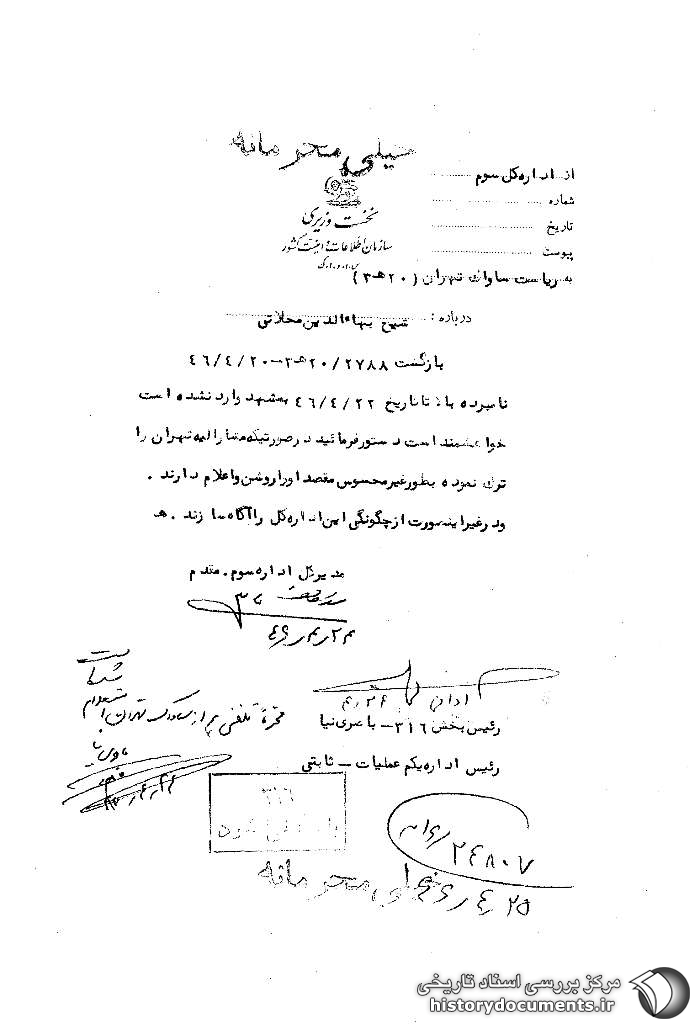 خیلی محرمانه
از اداره کل سوم
شماره
نخست وزیری
تاریخ
سازمان اطلاعات و امنیت کشور
پیوست
س.ا.و.ا.ک
به ریاست ساواک تهران (۲۰هـ۳)
درباره: شیخ بهاءالدین محلاتی
بازگشت ۲۷۸۸/۲۰هـ۳-۴۶/۴/۲۰
نامبرده بالا تا تاریخ ۴۶/۴/۲۲ بمشهد وارد نشده است
خواهشمند است دستور فرمائید در صورتیکه مشارالیه تهران را
ترک نموده بطور غیر محسوس مقصد او را روشن و اعلام دارند.
و در غیر اینصورت از چگونگی این اداره کل را آگاه سازند. هـ
مدیر کل اداره سوم. مقدم
۴۶/۴/۲۴
رئیس بخش ۳۱۶- باصری نیا
رئیس اداره یکم عملیات - ثابتی
۳۱۶
بایگانی شود
۲۴۸۰۷
۴۶/۴/۲۵
خیلی محرمانه
مرکز بررسی اسناد تاریخی
historydocuments.ir